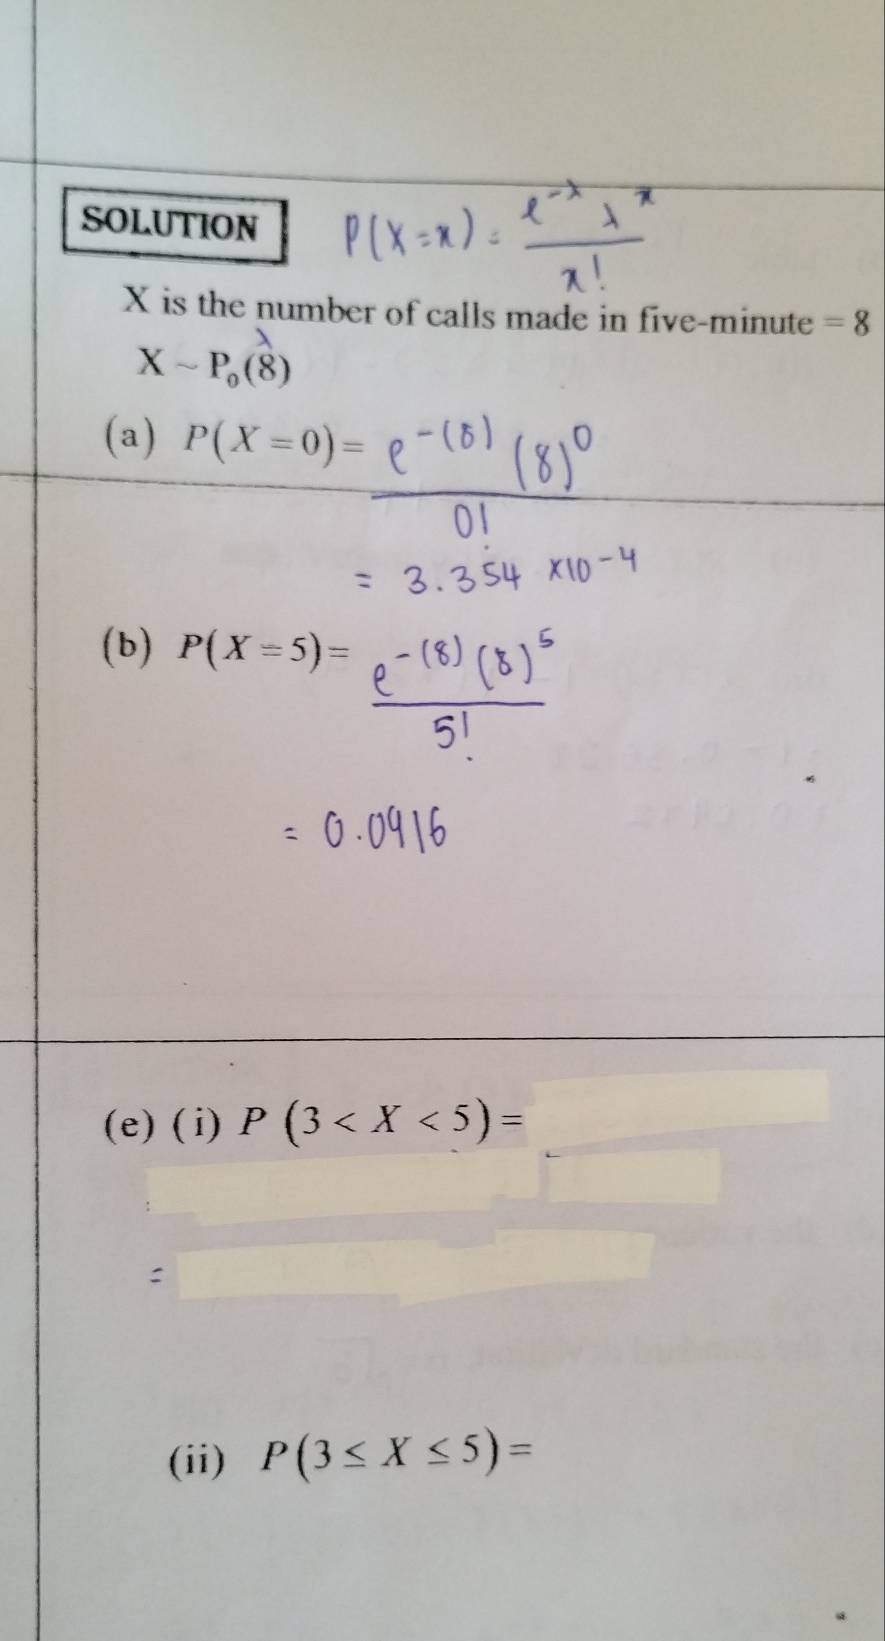 SOLUTION P(X=x) = e^-λ λ^x / x!
X is the number of calls made in five-minute = 8
λ
X ~ P₀(8)
(a) P(X = 0) = e^-(8) (8)^0 / 0!
= 3.354 x10^-4
(b) P(X = 5) = e^-(8) (8)^5 / 5!
= 0.0916
(e) (i) P (3 < X < 5) =
=
(ii) P(3 ≤ X ≤ 5) =